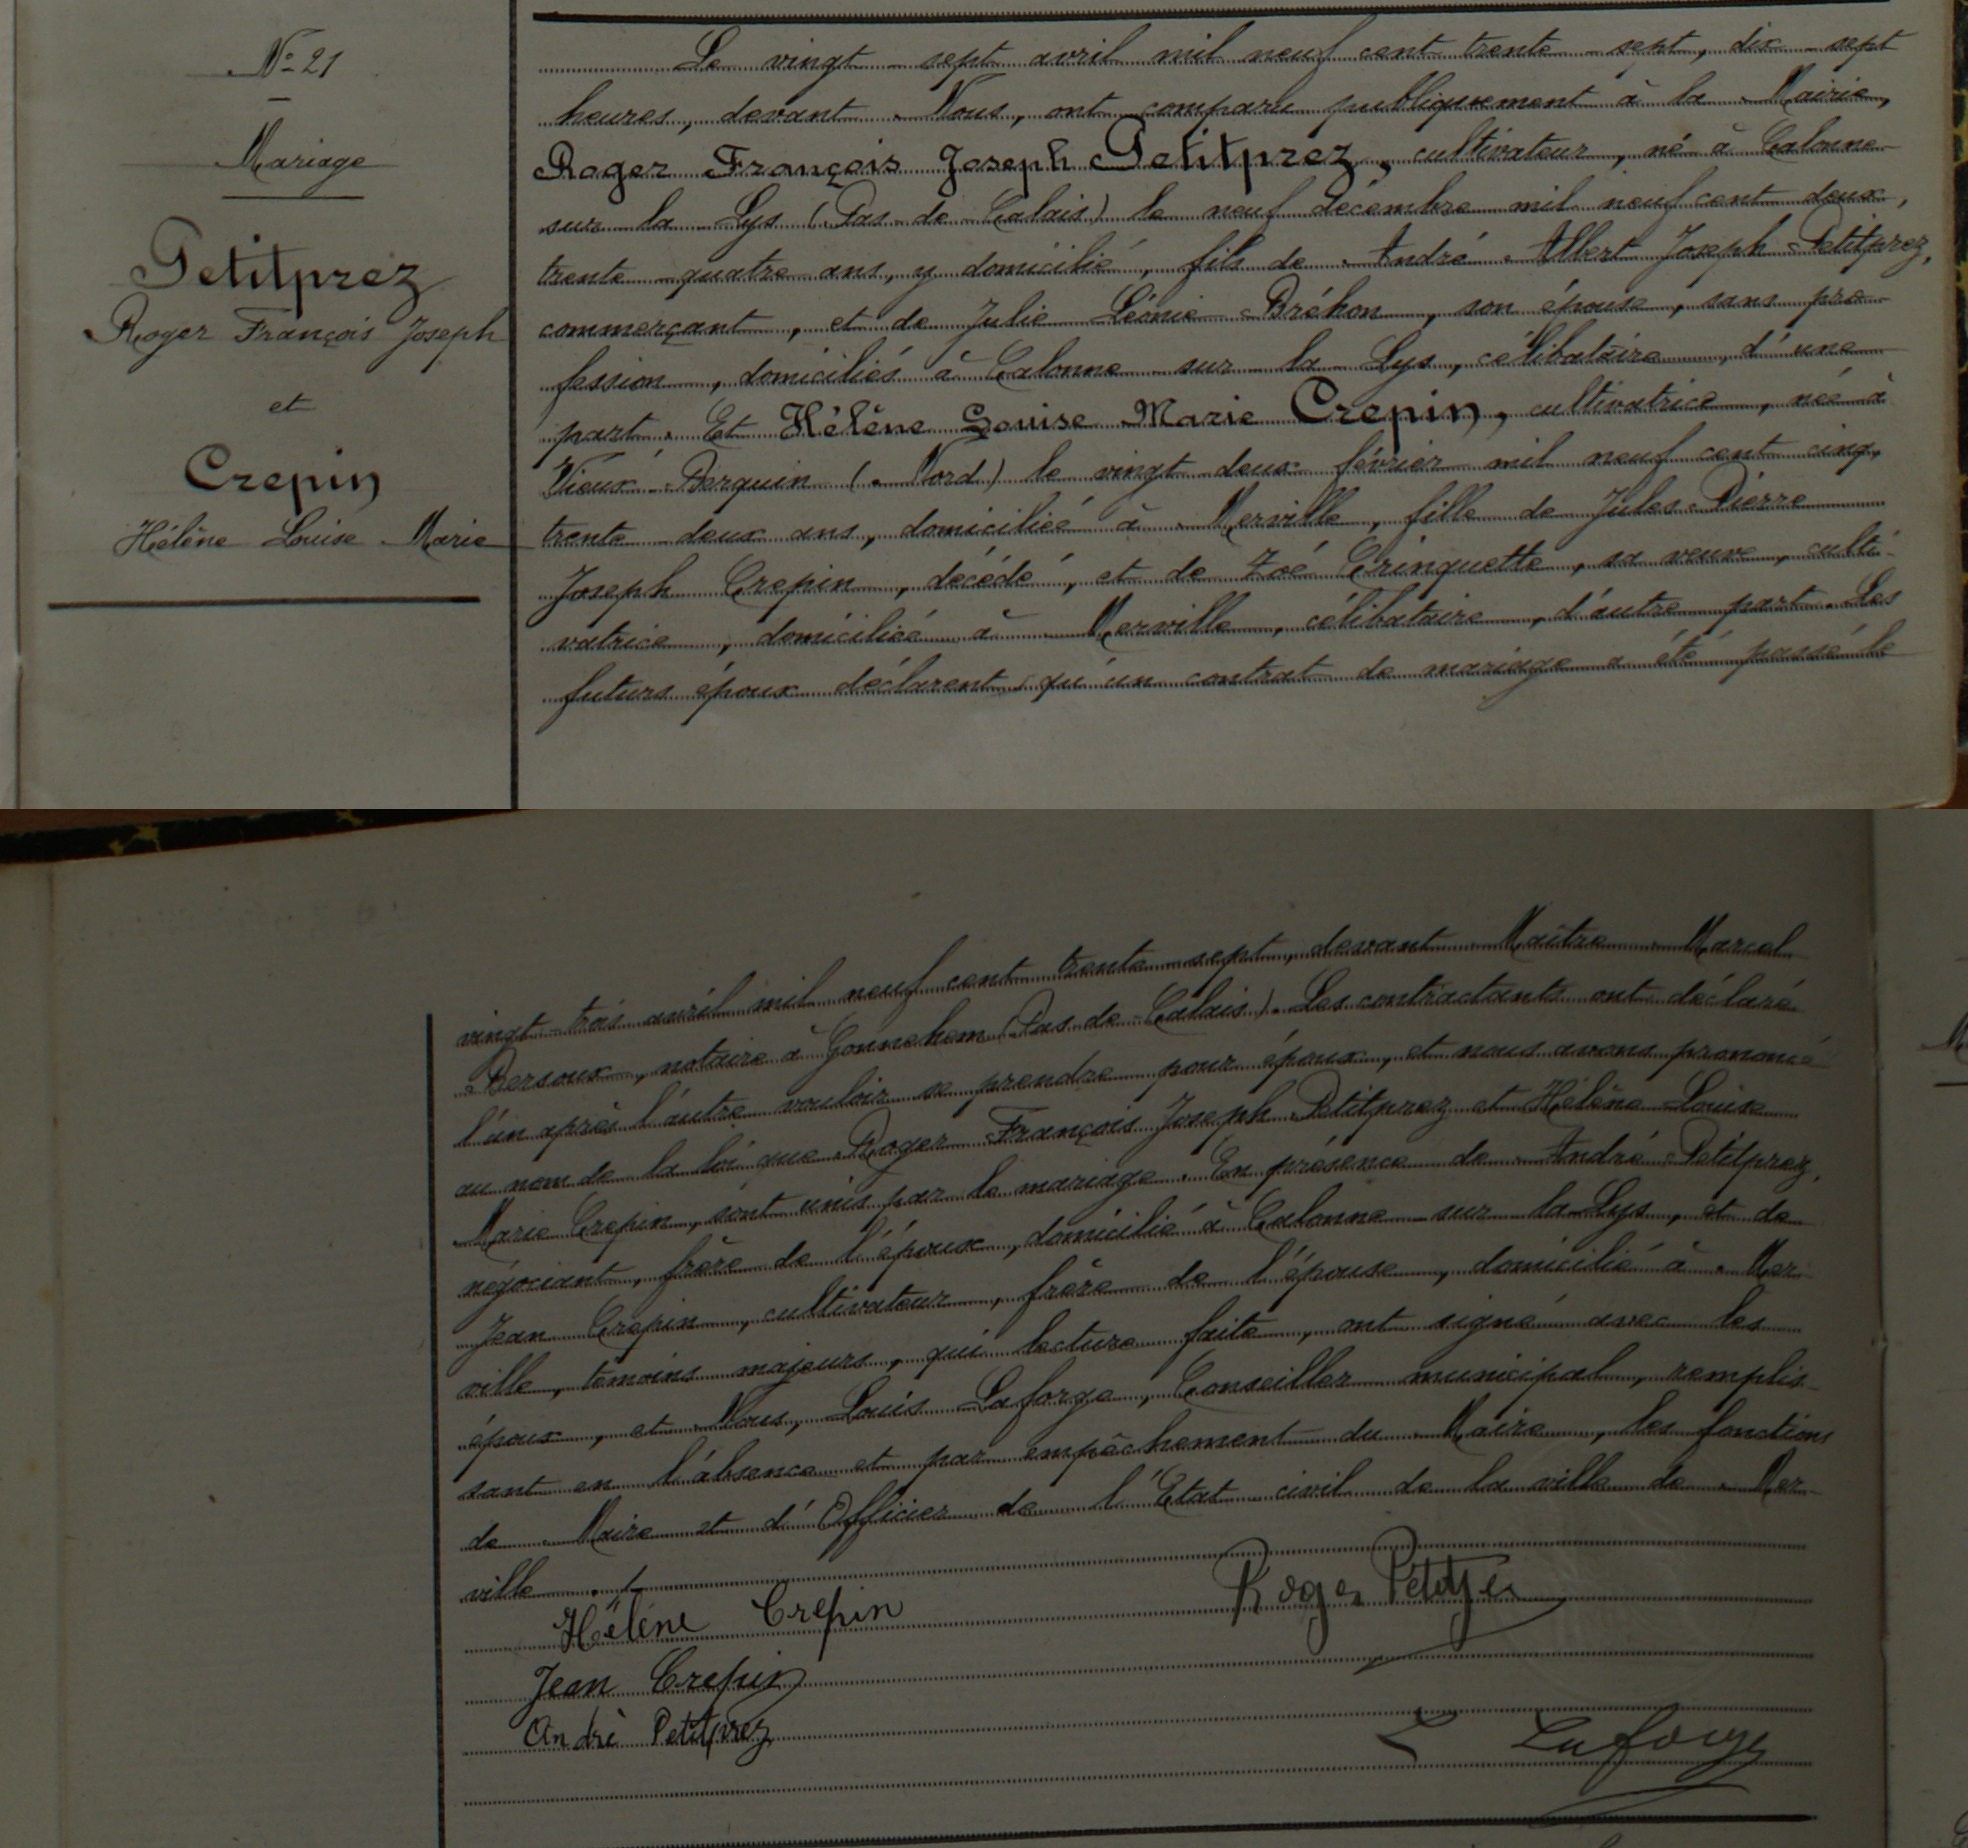 N° 21
Mariage
Petitprez
Roger François Joseph
et
Crepin
Hélène Louise Marie
Le vingt-sept avril mil neuf cent trente-sept, dix-sept
heures, devant Nous, ont comparu publiquement à la Mairie,
Roger François Joseph Petitprez, cultivateur, né à Calonne-
sur la Lys (Pas-de-Calais) le neuf décembre mil neuf cent deux,
trente-quatre ans, y domicilié, fils de André Albert Joseph Petitprez,
commerçant, et de Julie Léonie Bréhon, son épouse, sans pro-
fession, domiciliés à Calonne sur la Lys, célibataire, d'une
part. Et Hélène Louise Marie Crepin, cultivatrice, née à
Vieux-Berquin (Nord) le vingt deux février mil neuf cent cinq,
trente-deux ans, domiciliée à Merville, fille de Jules Pierre
Joseph Crepin, décédé, et de Zoé Crinquette, sa veuve, culti-
vatrice, domiciliée à Merville, célibataire, d'autre part. Les
futurs époux déclarent qu'un contrat de mariage a été passé le
vingt-trois avril mil neuf cent trente-sept, devant Maître Marcel
Bersoux, notaire à Gonnehem (Pas-de-Calais). Les contractants ont déclaré
l'un après l'autre vouloir se prendre pour époux, et nous avons prononcé
au nom de la loi que Roger François Joseph Petitprez et Hélène Louise
Marie Crepin, sont unis par le mariage. En présence de André Petitprez,
négociant, frère de l'époux, domicilié à Calonne-sur-la-Lys, et de
Jean Crepin, cultivateur, frère de l'épouse, domicilié à Mer-
ville, témoins majeurs, qui lecture faite, ont signé avec les
époux, et Nous, Louis Laforge, Conseiller municipal, remplis-
sant en l'absence et par empêchement du Maire, les fonctions
de Maire et d'Officier de l'Etat civil de la ville de Mer-
ville ./.
Hélène Crepin
Roger Petitprez
Jean Crepin
André Petitprez
L Laforge